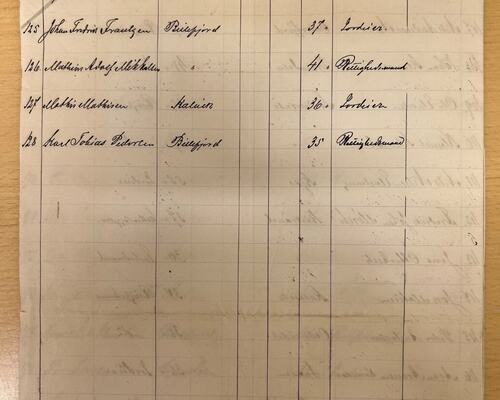 125 Johan Fredrik Frantzen Billefjord 37 Jordeier
126 Mathias Adolf Mikkelsen " 41 Rettighedsmand
127 Mathis Mathisen 36 Jordeier
128 Karl Tobias Pedersen Billefjord 35 Rettighedsmand